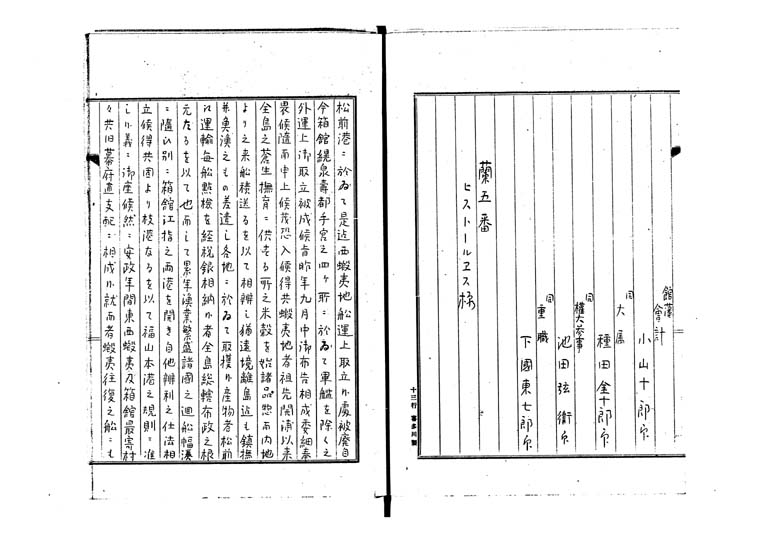 館藩
会計
小山十郎印
同
大属
種田金十郎印
同
権大参事
池田弦衛印
同
重職
下國東七郎印
蘭五番
ヒストールヱス様
十三行 喜多川製
松前港ニ於ゐて是迄西蝦夷地船運上取立候處被廃自
今箱館幌泉壽都手宮之四ヶ所ニ於ゐて軍艦を除く之
外運上御取立被成候旨昨年九月中御布告相成委細奉
畏候随而申上候茂恐入候得共蝦夷地者祖先開海以来
全島之蒼生撫育ニ供する所之米穀を始諸品惣而内地
より之来船積送るを以て相辨し猶遠境離島迄も鎮撫
并奥漢之もの差遣し各地ニ於ゐて取獲候産物者松前
江運輸毎船點検を経税銀相納候者全島総轄布政之根
元たるを以て也而して累年漁業繁盛諸國之廻船幅湊
ニ随ひ別ニ箱館江指之両港を開き自他辨利之仕法相
立候得共固より枝港なるを以て福山本港之規則ニ准
し候義ニ御座候然ニ安政年間東西蝦夷及箱館最寄村
々共旧幕府直支配ニ相成候就而者蝦夷往復之船ニも